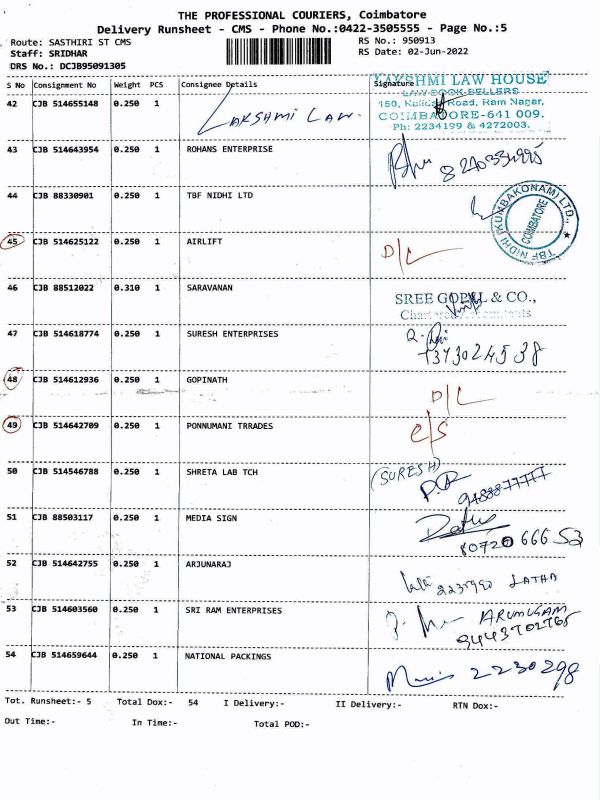 THE PROFESSIONAL COURIERS, Coimbatore
Delivery Runsheet - CMS - Phone No.:0422-3505555 - Page No.:5
Route: SASTHIRI ST CMS RS No.: 950913
Staff: SRIDHAR RS Date: 02-Jun-2022
DRS No.: DCJB95091305
S No Consignment No Weight PCS Consignee Details Signature
LAKSHMI LAW HOUSE
LAW BOOK SELLERS
42 CJB 514655148 0.250 1 LAKSHMI LAW. 150, Kalidas Road, Ram Nagar,
COIMBATORE-641 009.
Ph: 2234199 & 4272003.
43 CJB 514643954 0.250 1 ROHANS ENTERPRISE
44 CJB 88330901 0.250 1 TBF NIDHI LTD
TBF NIDHI (KUMBAKONAM) LTD., ★
COIMBATORE
45 CJB 514625122 0.250 1 AIRLIFT D/L
46 CJB 88512022 0.310 1 SARAVANAN SREE GOPAL & CO.,
Chartered Accountants
47 CJB 514618774 0.250 1 SURESH ENTERPRISES
7373024538
48 CJB 514612936 0.250 1 GOPINATH D/L
49 CJB 514642709 0.250 1 PONNUMANI TRRADES C/S
50 CJB 514546788 0.250 1 SHRETA LAB TCH (SURESH)
9488877777
51 CJB 88503117 0.250 1 MEDIA SIGN
80720 666 53
52 CJB 514642755 0.250 1 ARJUNARAJ LATHA
53 CJB 514603560 0.250 1 SRI RAM ENTERPRISES ARUMUGAM
9443702765
54 CJB 514659644 0.250 1 NATIONAL PACKINGS 2230298
Tot. Runsheet:- 5 Total Dox:- 54 I Delivery:- II Delivery:- RTN Dox:-
Out Time:- In Time:- Total POD:-